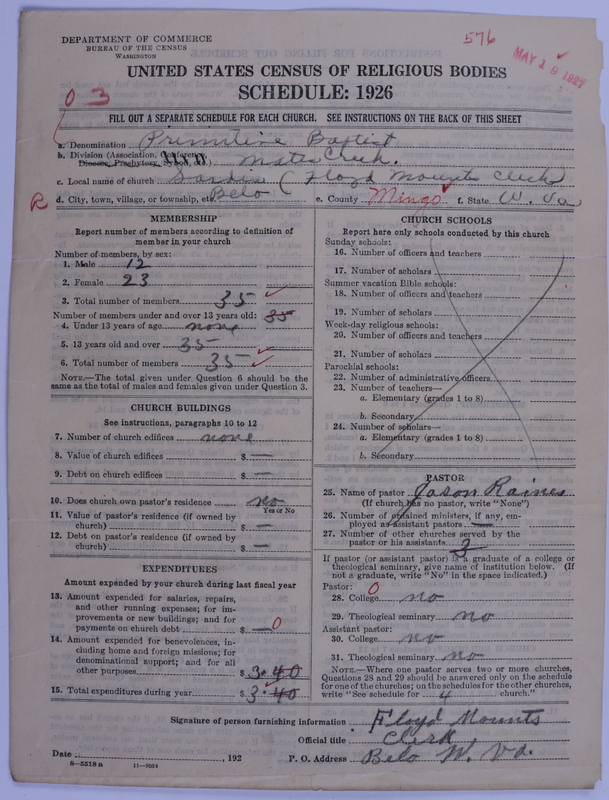 DEPARTMENT OF COMMERCE
BUREAU OF THE CENSUS
WASHINGTON
576
MAY 18 1927
UNITED STATES CENSUS OF RELIGIOUS BODIES
SCHEDULE: 1926
0 3
FILL OUT A SEPARATE SCHEDULE FOR EACH CHURCH. SEE INSTRUCTIONS ON THE BACK OF THIS SHEET
a. Denomination Primitive Baptist
b. Division (Association, Conference, Diocese, Presbytery, Synod, ) Mates Creek.
c. Local name of church Sardis (Floyd Mounts Clerk
R d. City, town, village, or township, etc. Belo e. County Mingo f. State W. Va
MEMBERSHIP
Report number of members according to definition of
member in your church
Number of members, by sex:
1. Male 12
2. Female 23
3. Total number of members 35
Number of members under and over 13 years old: 35
4. Under 13 years of age none
5. 13 years old and over 35
6. Total number of members 35
NOTE.—The total given under Question 6 should be the
same as the total of males and females given under Question 3.
CHURCH BUILDINGS
See instructions, paragraphs 10 to 12
7. Number of church edifices none
8. Value of church edifices $ —
9. Debt on church edifices $ —
10. Does church own pastor's residence no
Yes or No
11. Value of pastor's residence (if owned by
church) $ —
12. Debt on pastor's residence (if owned by
church) $ —
EXPENDITURES
Amount expended by your church during last fiscal year
13. Amount expended for salaries, repairs,
and other running expenses; for im-
provements or new buildings; and for
payments on church debt $ — 0
14. Amount expended for benevolences, in-
cluding home and foreign missions; for
denominational support; and for all
other purposes $ 3.40
15. Total expenditures during year $ 3.40
CHURCH SCHOOLS
Report here only schools conducted by this church
Sunday schools:
16. Number of officers and teachers
17. Number of scholars
Summer vacation Bible schools:
18. Number of officers and teachers
19. Number of scholars
Week-day religious schools:
20. Number of officers and teachers
21. Number of scholars
Parochial schools:
22. Number of administrative officers
23. Number of teachers—
a. Elementary (grades 1 to 8)
b. Secondary
24. Number of scholars—
a. Elementary (grades 1 to 8)
b. Secondary
PASTOR
25. Name of pastor Jason Raines
(If church has no pastor, write "None")
26. Number of ordained ministers, if any, em-
ployed as assistant pastors —
27. Number of other churches served by the
pastor or his assistants 3
If pastor (or assistant pastor) is a graduate of a college or
theological seminary, give name of institution below. (If
not a graduate, write "No" in the space indicated.)
Pastor: 0
28. College no
29. Theological seminary no
Assistant pastor:
30. College no
31. Theological seminary no
NOTE.—Where one pastor serves two or more churches,
Questions 28 and 29 should be answered only on the schedule
for one of the churches; on the schedules for the other churches,
write "See schedule for 4 church."
Signature of person furnishing information Floyd Mounts
Official title Clerk
Date , 192 P. O. Address Belo W. Va.
8—5518 a 11—9024